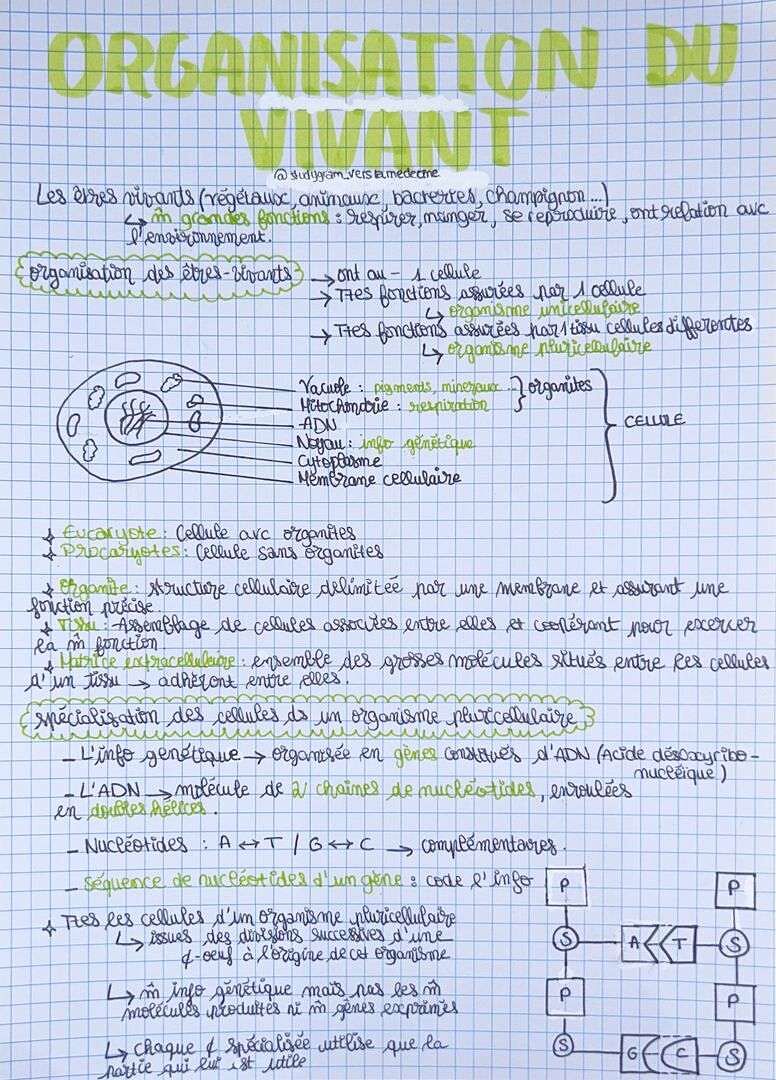 ORGANISATION DU
VIVANT
@studygram_vers_la.medecine
Les êtres vivants (végétaux, animaux, bacteries, champignon...)
↳ m̂ grandes fonctions : respirer, manger, se reproduire, ont relation avc
l'environnement.
organisation des êtres-vivants → ont au - 1 cellule
→ Ttes fonctions assurées par 1 cellule
↳ organisme unicellulaire
→ Ttes fonctions assurées par 1 tissu cellules differentes
↳ organisme pluricellulaire
Vacuole : pigments, mineraux } organites
Mitochondrie : respiration
ADN
CELLULE
Noyau : info génétique
Cytoplasme
Membrane cellulaire
Eucaryote : Cellule avc organites
Procaryotes : Cellule sans organites
Organite : structure cellulaire délimitée par une membrane et assurant une
fonction précise.
Tissu : Assemblage de cellules associées entre elles et coopérant pour exercer
la m̂ fonction.
Matrice extracellulaire : ensemble des grosses molécules situés entre les cellules
d'un tissu → adhèront entre elles.
spécialisation des cellules ds un organisme pluricellulaire
- L'info genétique → organisée en gènes constitués d'ADN (Acide désoxyribo-
nucléique)
- L'ADN → molécule de 2 chaines de nucléotides, enroulées
en doubles hélices.
- Nucléotides : A ↔ T / G ↔ C → complémentaires.
- Séquence de nucléotides d'un gène : code l'info
P P
Ttes les cellules d'un organisme pluricellulaire
↳ issues des divisions successives d'une
S A T S
¢-oeuf à l'origine de cet organisme
↳ m̂ info génétique mais pas les m̂
P P
molécules produites ni m̂ gènes exprimés
↳ chaque ¢ spécialisée utilise que la
S G C S
partie qui lui est utile